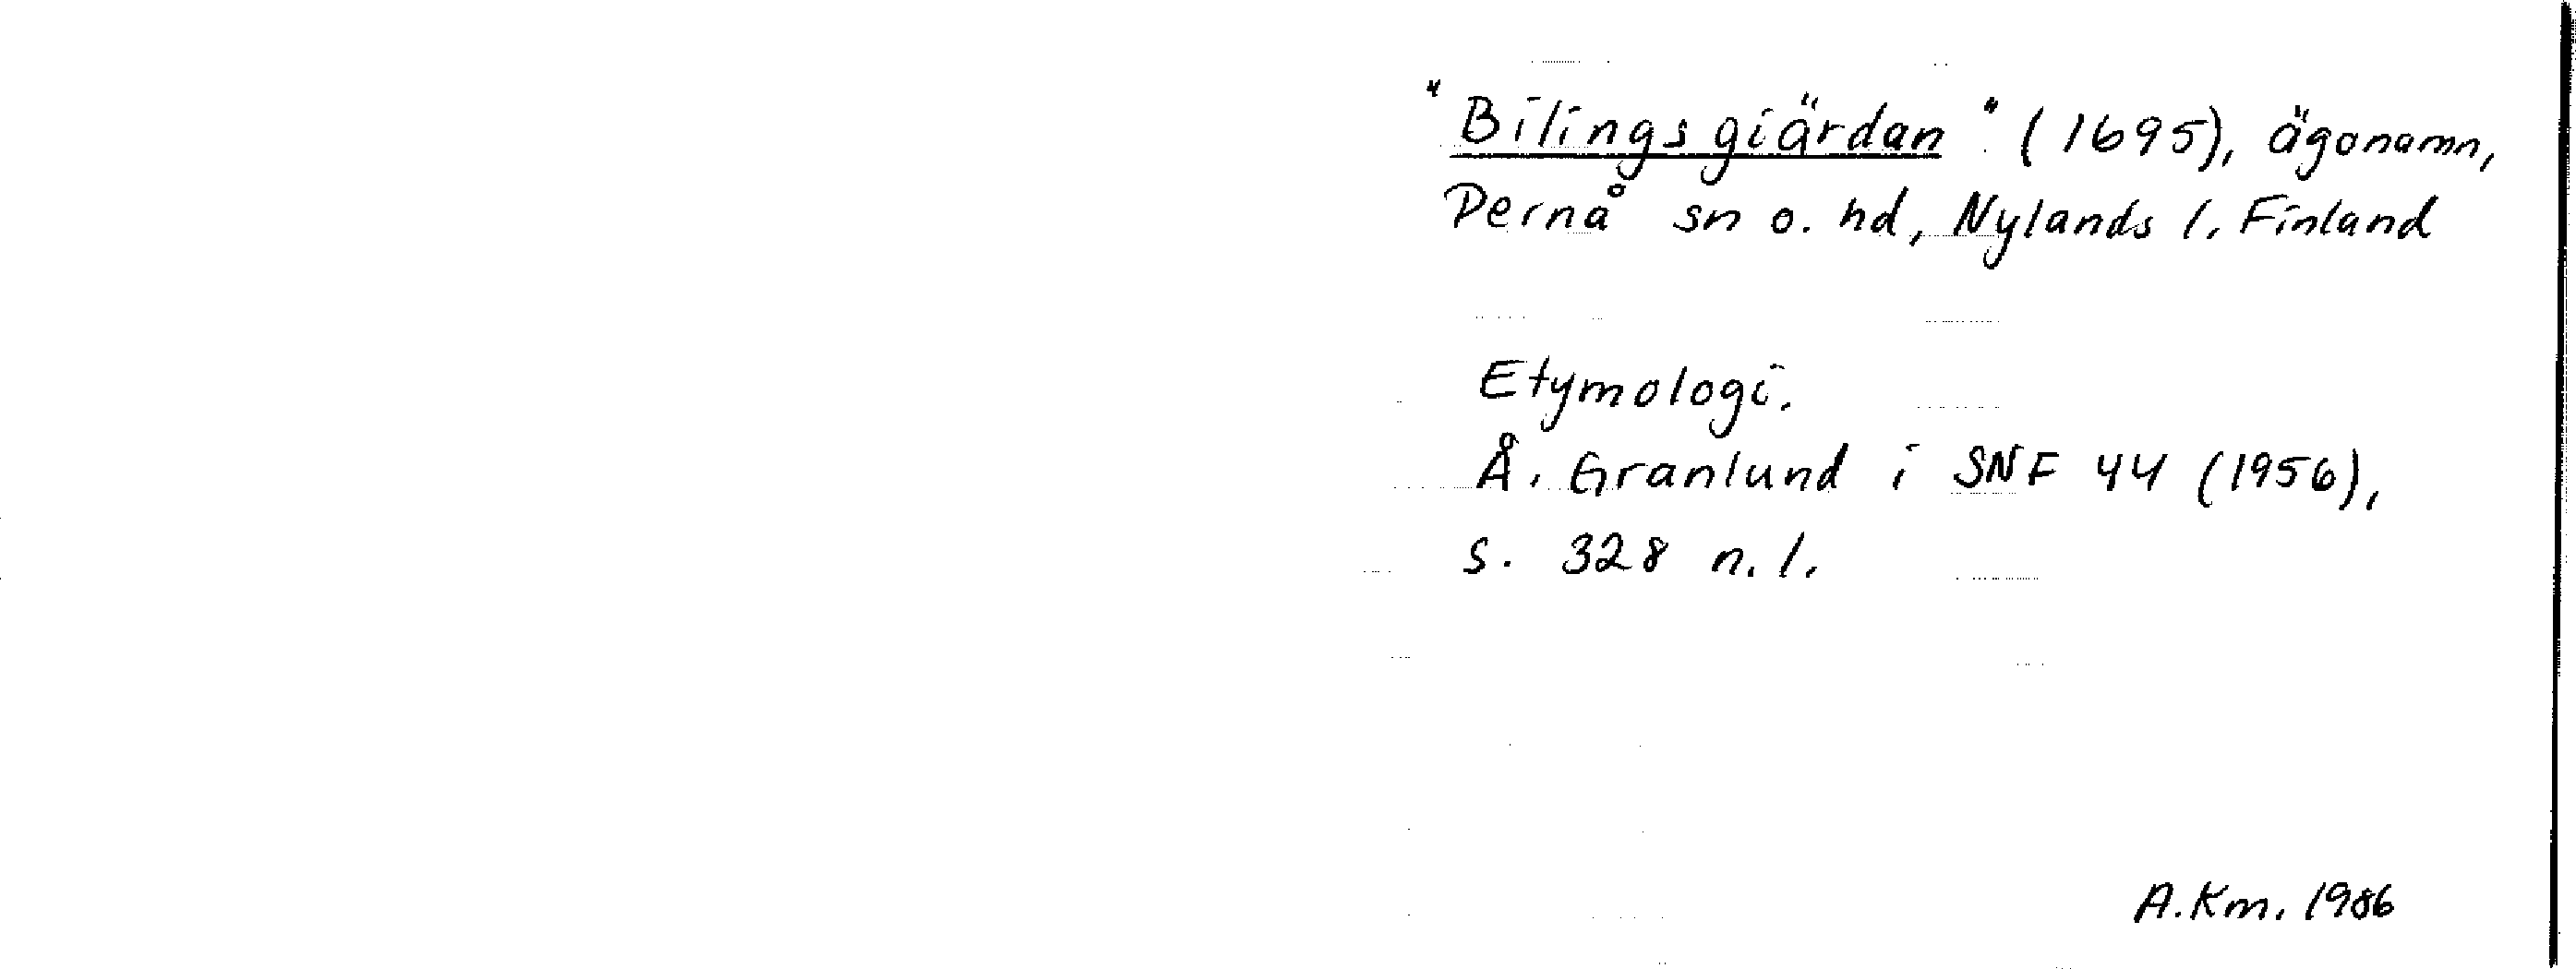 "Bilingsgiärdan" (1695), ägonamn,
Pernå sn o. hd, Nylands l. Finland
Etymologi.
Å. Granlund i SNF 44 (1956),
s. 328 n. l.
A.Km. 1986